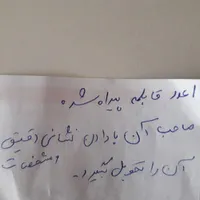 ۱ عدد قابلمه پیدا شده
صاحب آن با دادن نشانی دقیق و مشخصات
آن را تحویل بگیرد.